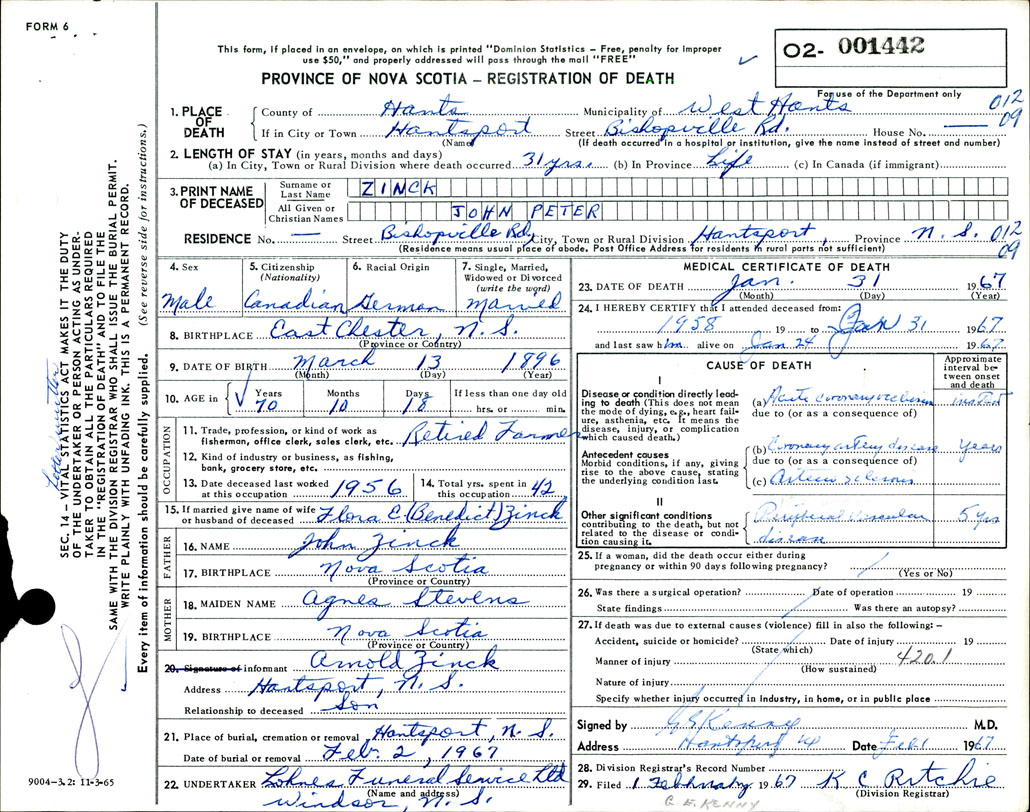 FORM 6
This form, if placed in an envelope, on which is printed "Dominion Statistics – Free, penalty for improper
use $50," and properly addressed will pass through the mail "FREE"
PROVINCE OF NOVA SCOTIA – REGISTRATION OF DEATH
O2- 001442
For use of the Department only
1. PLACE OF DEATH County of Hants Municipality of West Hants 012
If in City or Town Hantsport Street Bishopville Rd. House No. — 09
(Name) (If death occurred in a hospital or institution, give the name instead of street and number)
2. LENGTH OF STAY (in years, months and days)
(a) In City, Town or Rural Division where death occurred 31 yrs. (b) In Province Life (c) In Canada (if immigrant)
3. PRINT NAME OF DECEASED Surname or Last Name ZINCK
All Given or Christian Names JOHN PETER
RESIDENCE No. — Street Bishopville Rd. City, Town or Rural Division Hantsport, Province N. S. 012
(Residence means usual place of abode. Post Office Address for residents in rural parts not sufficient) 09
4. Sex Male
5. Citizenship (Nationality) Canadian
6. Racial Origin German
7. Single, Married, Widowed or Divorced (write the word) Married
8. BIRTHPLACE East Chester, N. S.
(Province or Country)
9. DATE OF BIRTH March 13 1896
(Month) (Day) (Year)
10. AGE in Years 70 Months 10 Days 18 If less than one day old
hrs. or min.
OCCUPATION
11. Trade, profession, or kind of work as fisherman, office clerk, sales clerk, etc. Retired Farmer
12. Kind of industry or business, as fishing, bank, grocery store, etc.
13. Date deceased last worked at this occupation 1956
14. Total yrs. spent in this occupation 42
15. If married give name of wife or husband of deceased Flora C. (Benedict) Zinck
FATHER
16. NAME John Zinck
17. BIRTHPLACE Nova Scotia
(Province or Country)
MOTHER
18. MAIDEN NAME Agnes Stevens
19. BIRTHPLACE Nova Scotia
(Province or Country)
20. Signature of informant Arnold Zinck
Address Hantsport, N. S.
Relationship to deceased Son
21. Place of burial, cremation or removal Hantsport, N. S.
Date of burial or removal Feb. 2, 1967
22. UNDERTAKER Lohnes Funeral Service Ltd
(Name and address)
Windsor, N. S.
MEDICAL CERTIFICATE OF DEATH
23. DATE OF DEATH Jan. 31 1967
(Month) (Day) (Year)
24. I HEREBY CERTIFY that I attended deceased from:
1958 19 to Jan 31 1967
and last saw him alive on Jan. 24 1967
CAUSE OF DEATH
Approximate interval between onset and death
I
Disease or condition directly leading to death (This does not mean the mode of dying, e.g., heart failure, asthenia, etc. It means the disease, injury, or complication which caused death.)
(a) Acute coronary occlusion instant
due to (or as a consequence of)
Antecedent causes
Morbid conditions, if any, giving rise to the above cause, stating the underlying condition last.
(b) Coronary artery disease years
due to (or as a consequence of)
(c) Arteriosclerosis
II
Other significant conditions
contributing to the death, but not related to the disease or condition causing it.
Peripheral vascular disease 5 yrs
25. If a woman, did the death occur either during
pregnancy or within 90 days following pregnancy?
(Yes or No)
26. Was there a surgical operation? Date of operation 19
State findings Was there an autopsy?
27. If death was due to external causes (violence) fill in also the following: –
Accident, suicide or homicide? Date of injury 19
(State which)
Manner of injury 420.1
(How sustained)
Nature of injury
Specify whether injury occurred in industry, in home, or in public place
Signed by G E Kenny M.D.
Address Hantsport Date Feb 1 1967
28. Division Registrar's Record Number
29. Filed 1 February 1967 K C Ritchie
(Division Registrar)
G. E. KENNY
SEC. 14 – VITAL STATISTICS ACT MAKES IT THE DUTY
OF THE UNDERTAKER OR PERSON ACTING AS UNDER-
TAKER TO OBTAIN ALL THE PARTICULARS REQUIRED
IN THE "REGISTRATION OF DEATH" AND TO FILE THE
SAME WITH THE DIVISION REGISTRAR WHO SHALL ISSUE THE BURIAL PERMIT.
WRITE PLAINLY WITH UNFADING INK. THIS IS A PERMANENT RECORD.
Every item of information should be carefully supplied. (See reverse side for instructions.)
9004-3.2: 11-3-65